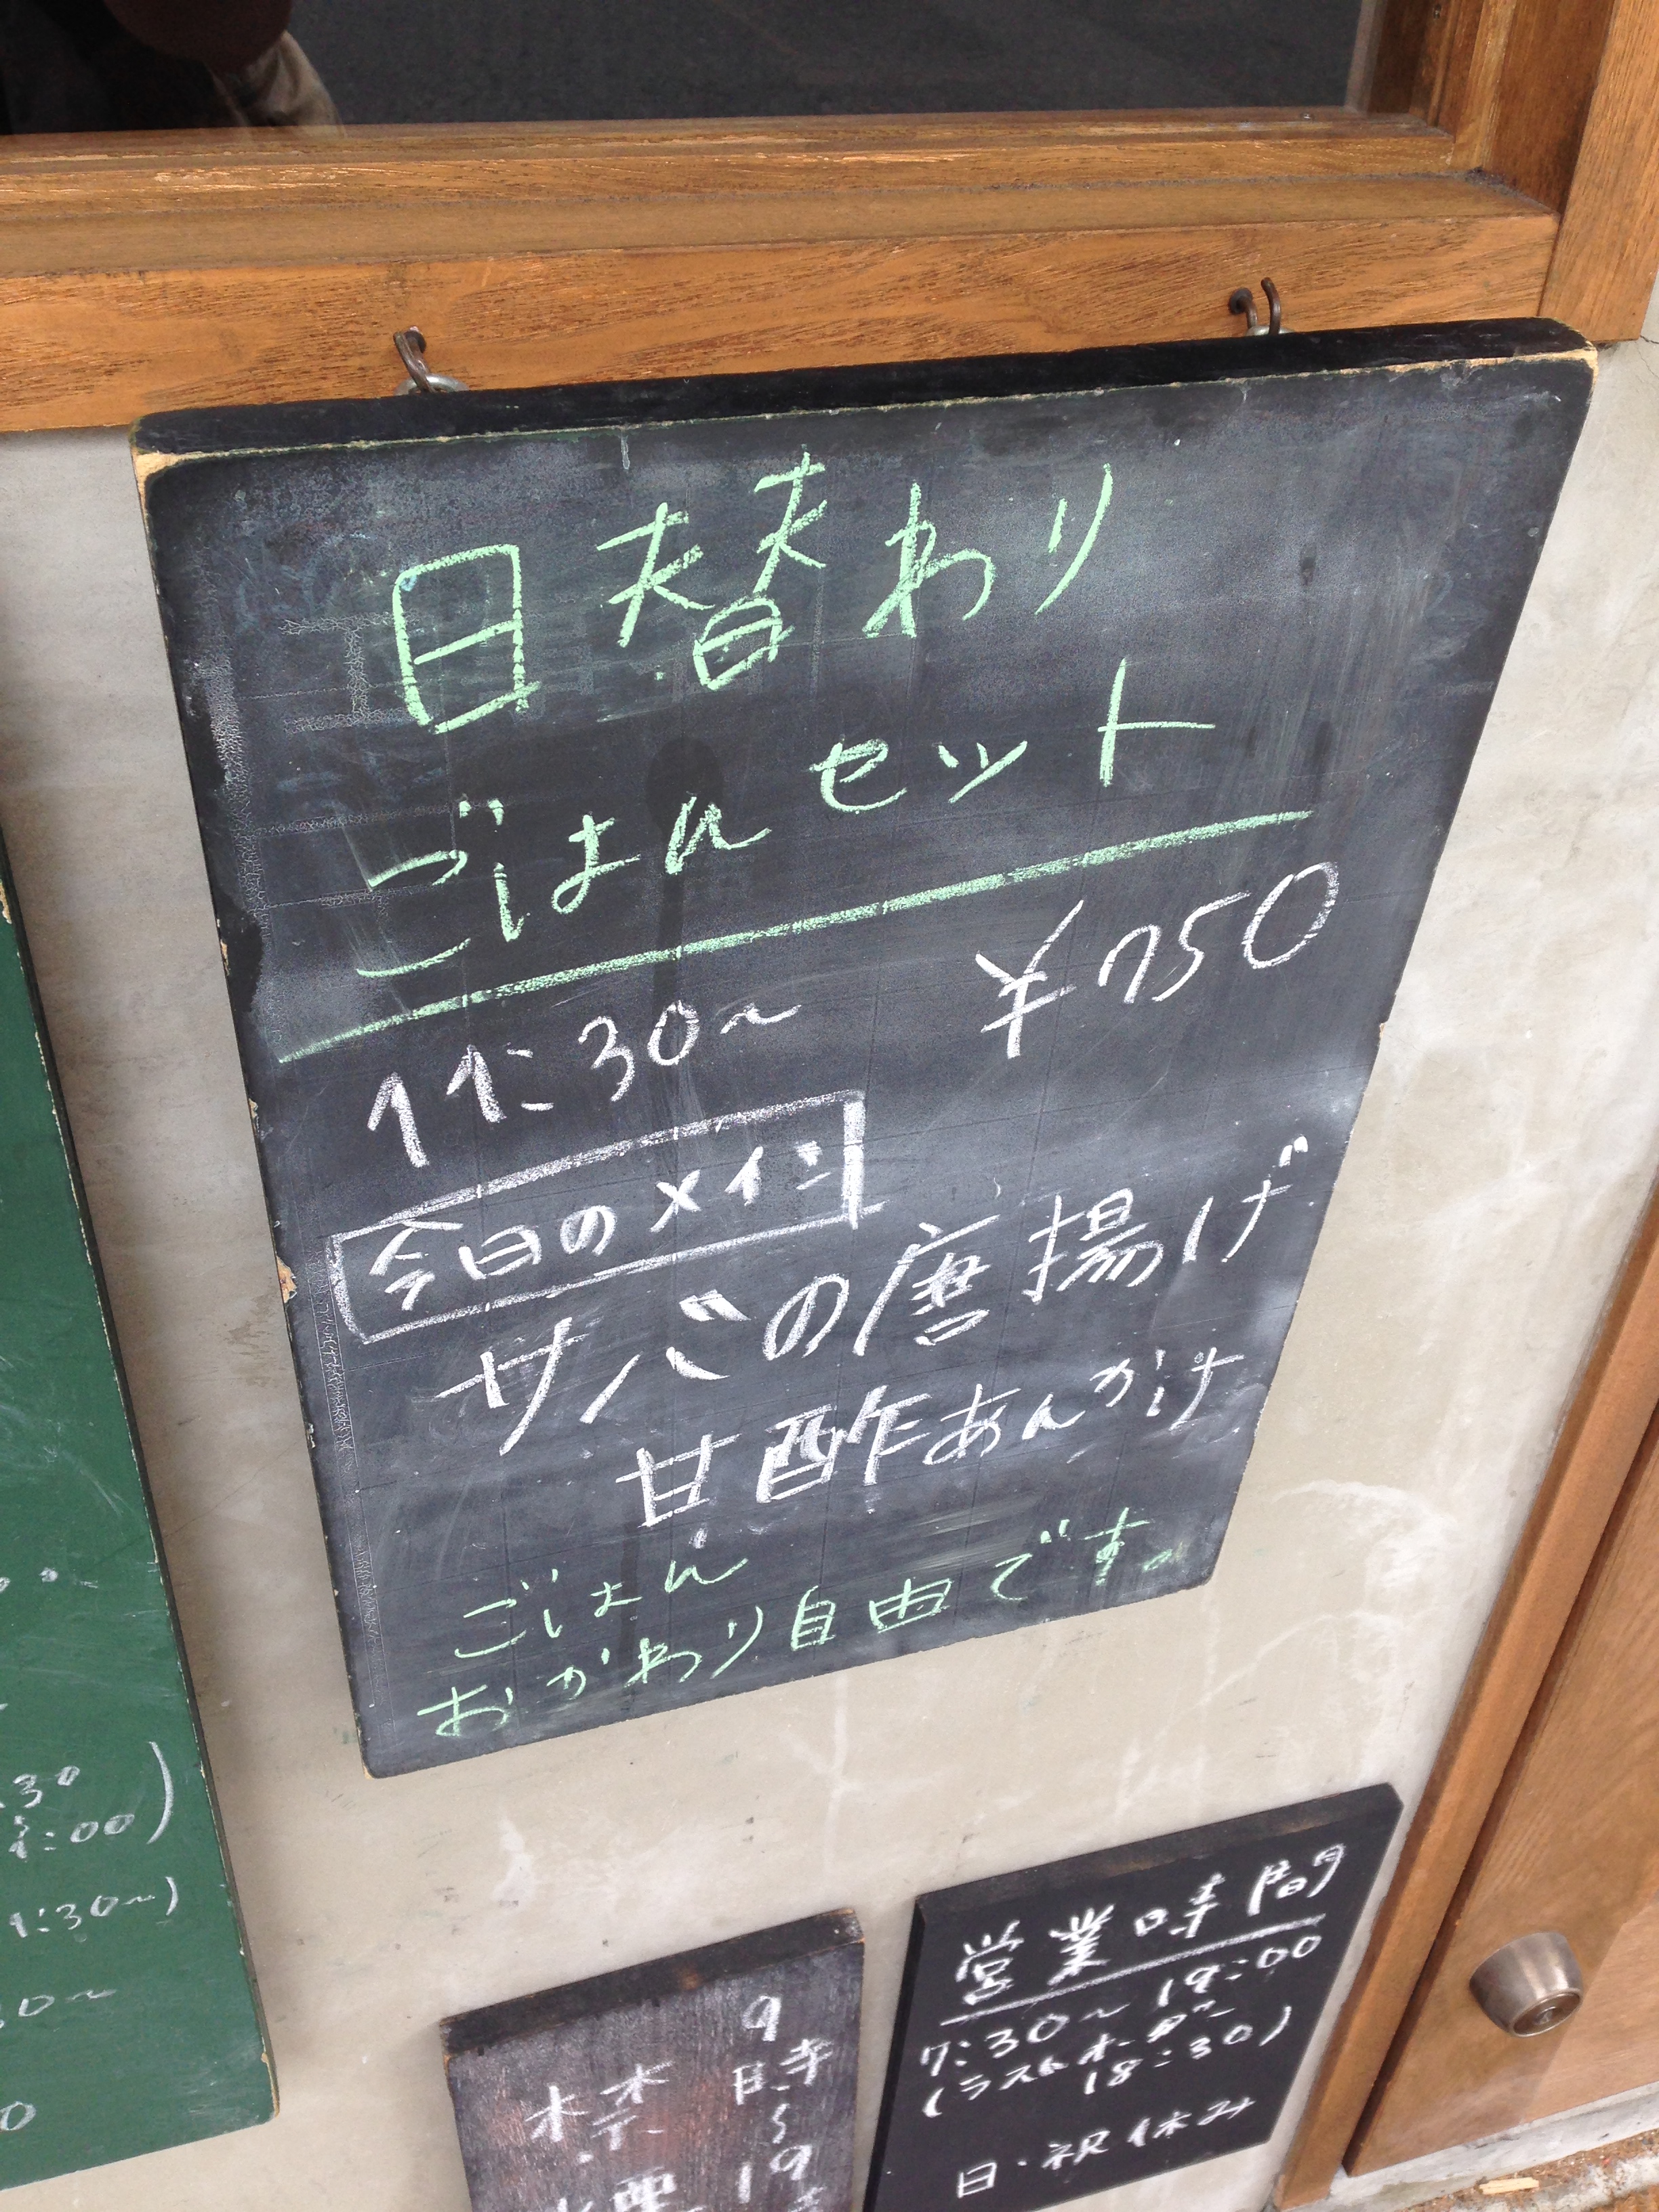 日替わり
ごはんセット
11:30〜 ¥750
今日のメイン
サバの唐揚げ
甘酢あんかけ
ごはん
おかわり自由です。
営業時間
7:30〜19:00
(ラストオーダー
18:30)
日・祝休み
9時〜19
禁
:00)
1:30〜)